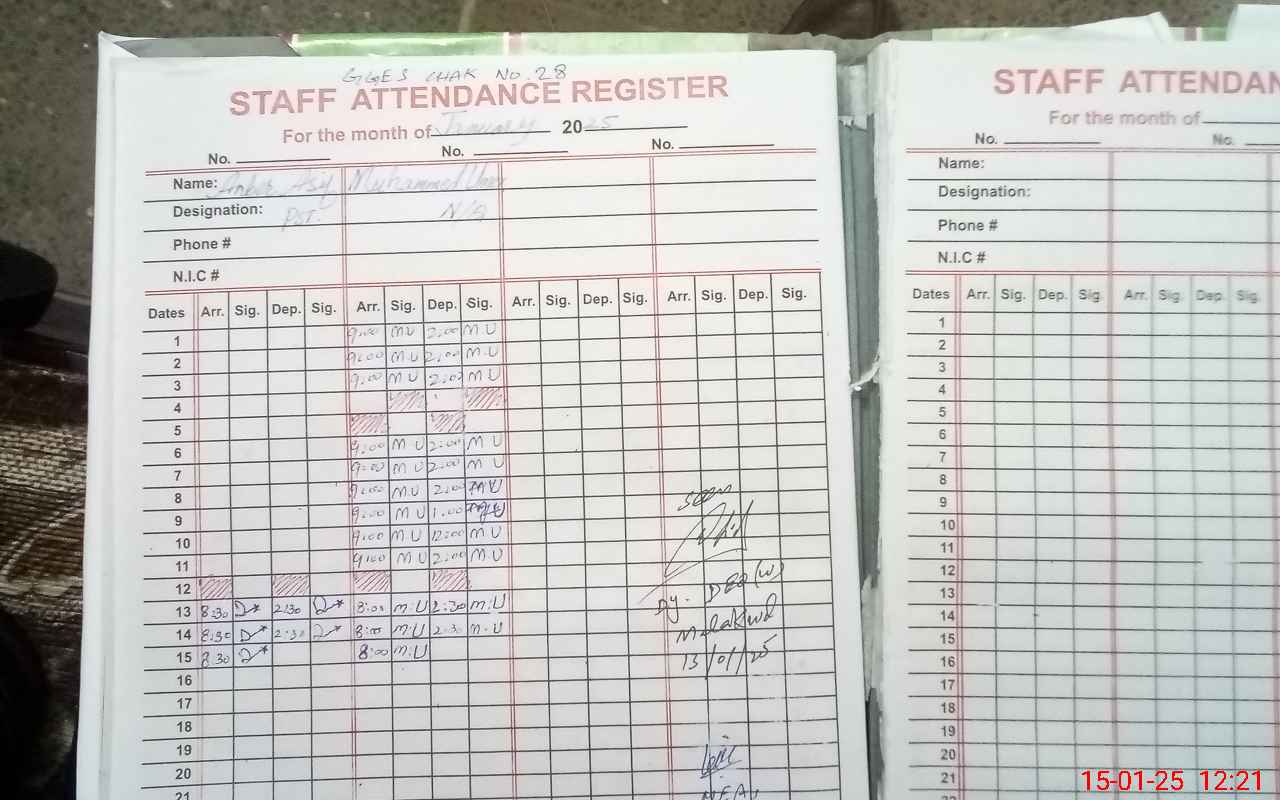 GGES CHAK NO. 28
STAFF ATTENDANCE REGISTER
For the month of January 2025
No. No. No.
Name: Amber Asif Muhammad Umar
Designation: PST. N/Q
Phone #
N.I.C #
Dates Arr. Sig. Dep. Sig. Arr. Sig. Dep. Sig. Arr. Sig. Dep. Sig. Arr. Sig. Dep. Sig.
1 9:00 M.U 2:00 M.U
2 9:00 M.U 2:00 M.U
3 9:00 M.U 2:00 M.U
4
5
6 9:00 M.U 2:00 M.U
7 9:00 M.U 2:00 M.U
8 9:00 M.U 2:00
9 9:00 M.U 1:00
10 9:00 M.U 12:00 M.U
11 9:00 M.U 2:00 M.U
12
13 8:30 2:30 8:00 M:U 2:30 M:U
14 8:30 2:30 8:00 M:U 2:30 M.U
15 8:30 8:00 M:U
16
17
18
19
20
21
Seen
Dy. DEO (W)
Malakwal
13/01/25
STAFF ATTENDAN
For the month of
No. No.
Name:
Designation:
Phone #
N.I.C #
Dates Arr. Sig. Dep. Sig. Arr. Sig. Dep. Sig.
1
2
3
4
5
6
7
8
9
10
11
12
13
14
15
16
17
18
19
20
21
15-01-25 12:21